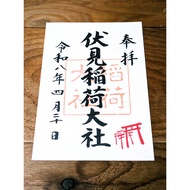 奉拝
伏見稲荷大社
稲荷
大社
令和八年四月二十日